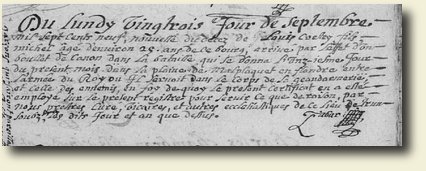 Du Lundy Vingtrois Jour de Septembre
mil sept Cents neuf, nouvelle du deces de Louis Caelez fils
michel âgé denviron 25. ans de ce bourg, arrivé par l'effet d'un
boullet de Canon dans la bataille qui se donna l'onziesme Jour
du present mois dans la plaine de Malplaquet en flandre entre
l'armée du Roy ou Il servoit dans le Corps de la gendarmerie,
et Celle des ennemis, En foy de quoy le present Certificat en a esté
employé sur le present registre pour servir Ce que de raison, par
nous prestres Curé, vicaires, et autres ecclesiastiques de ce lieu de
les dits Jour et an que dessus.